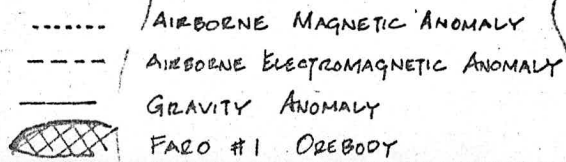 AIRBORNE MAGNETIC ANOMALY
AIRBORNE ELECTROMAGNETIC ANOMALY
GRAVITY ANOMALY
FARO #1 OREBODY